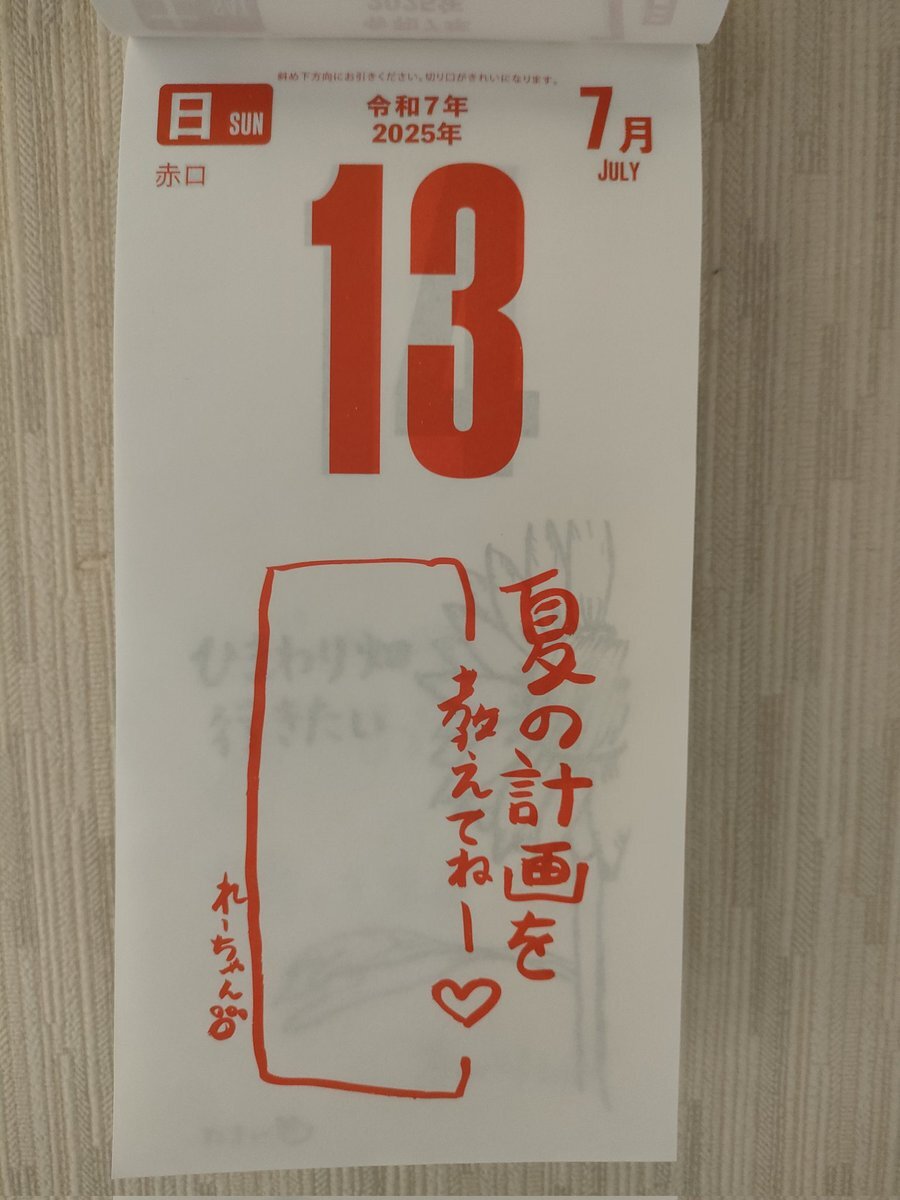 斜め下方向にお引きください。切り口がきれいになります。
日 SUN
令和7年
2025年
7月
JULY
赤口
13
夏の計画を
教えてねー♡
れーちゃん
ひまわり畑
行きたい